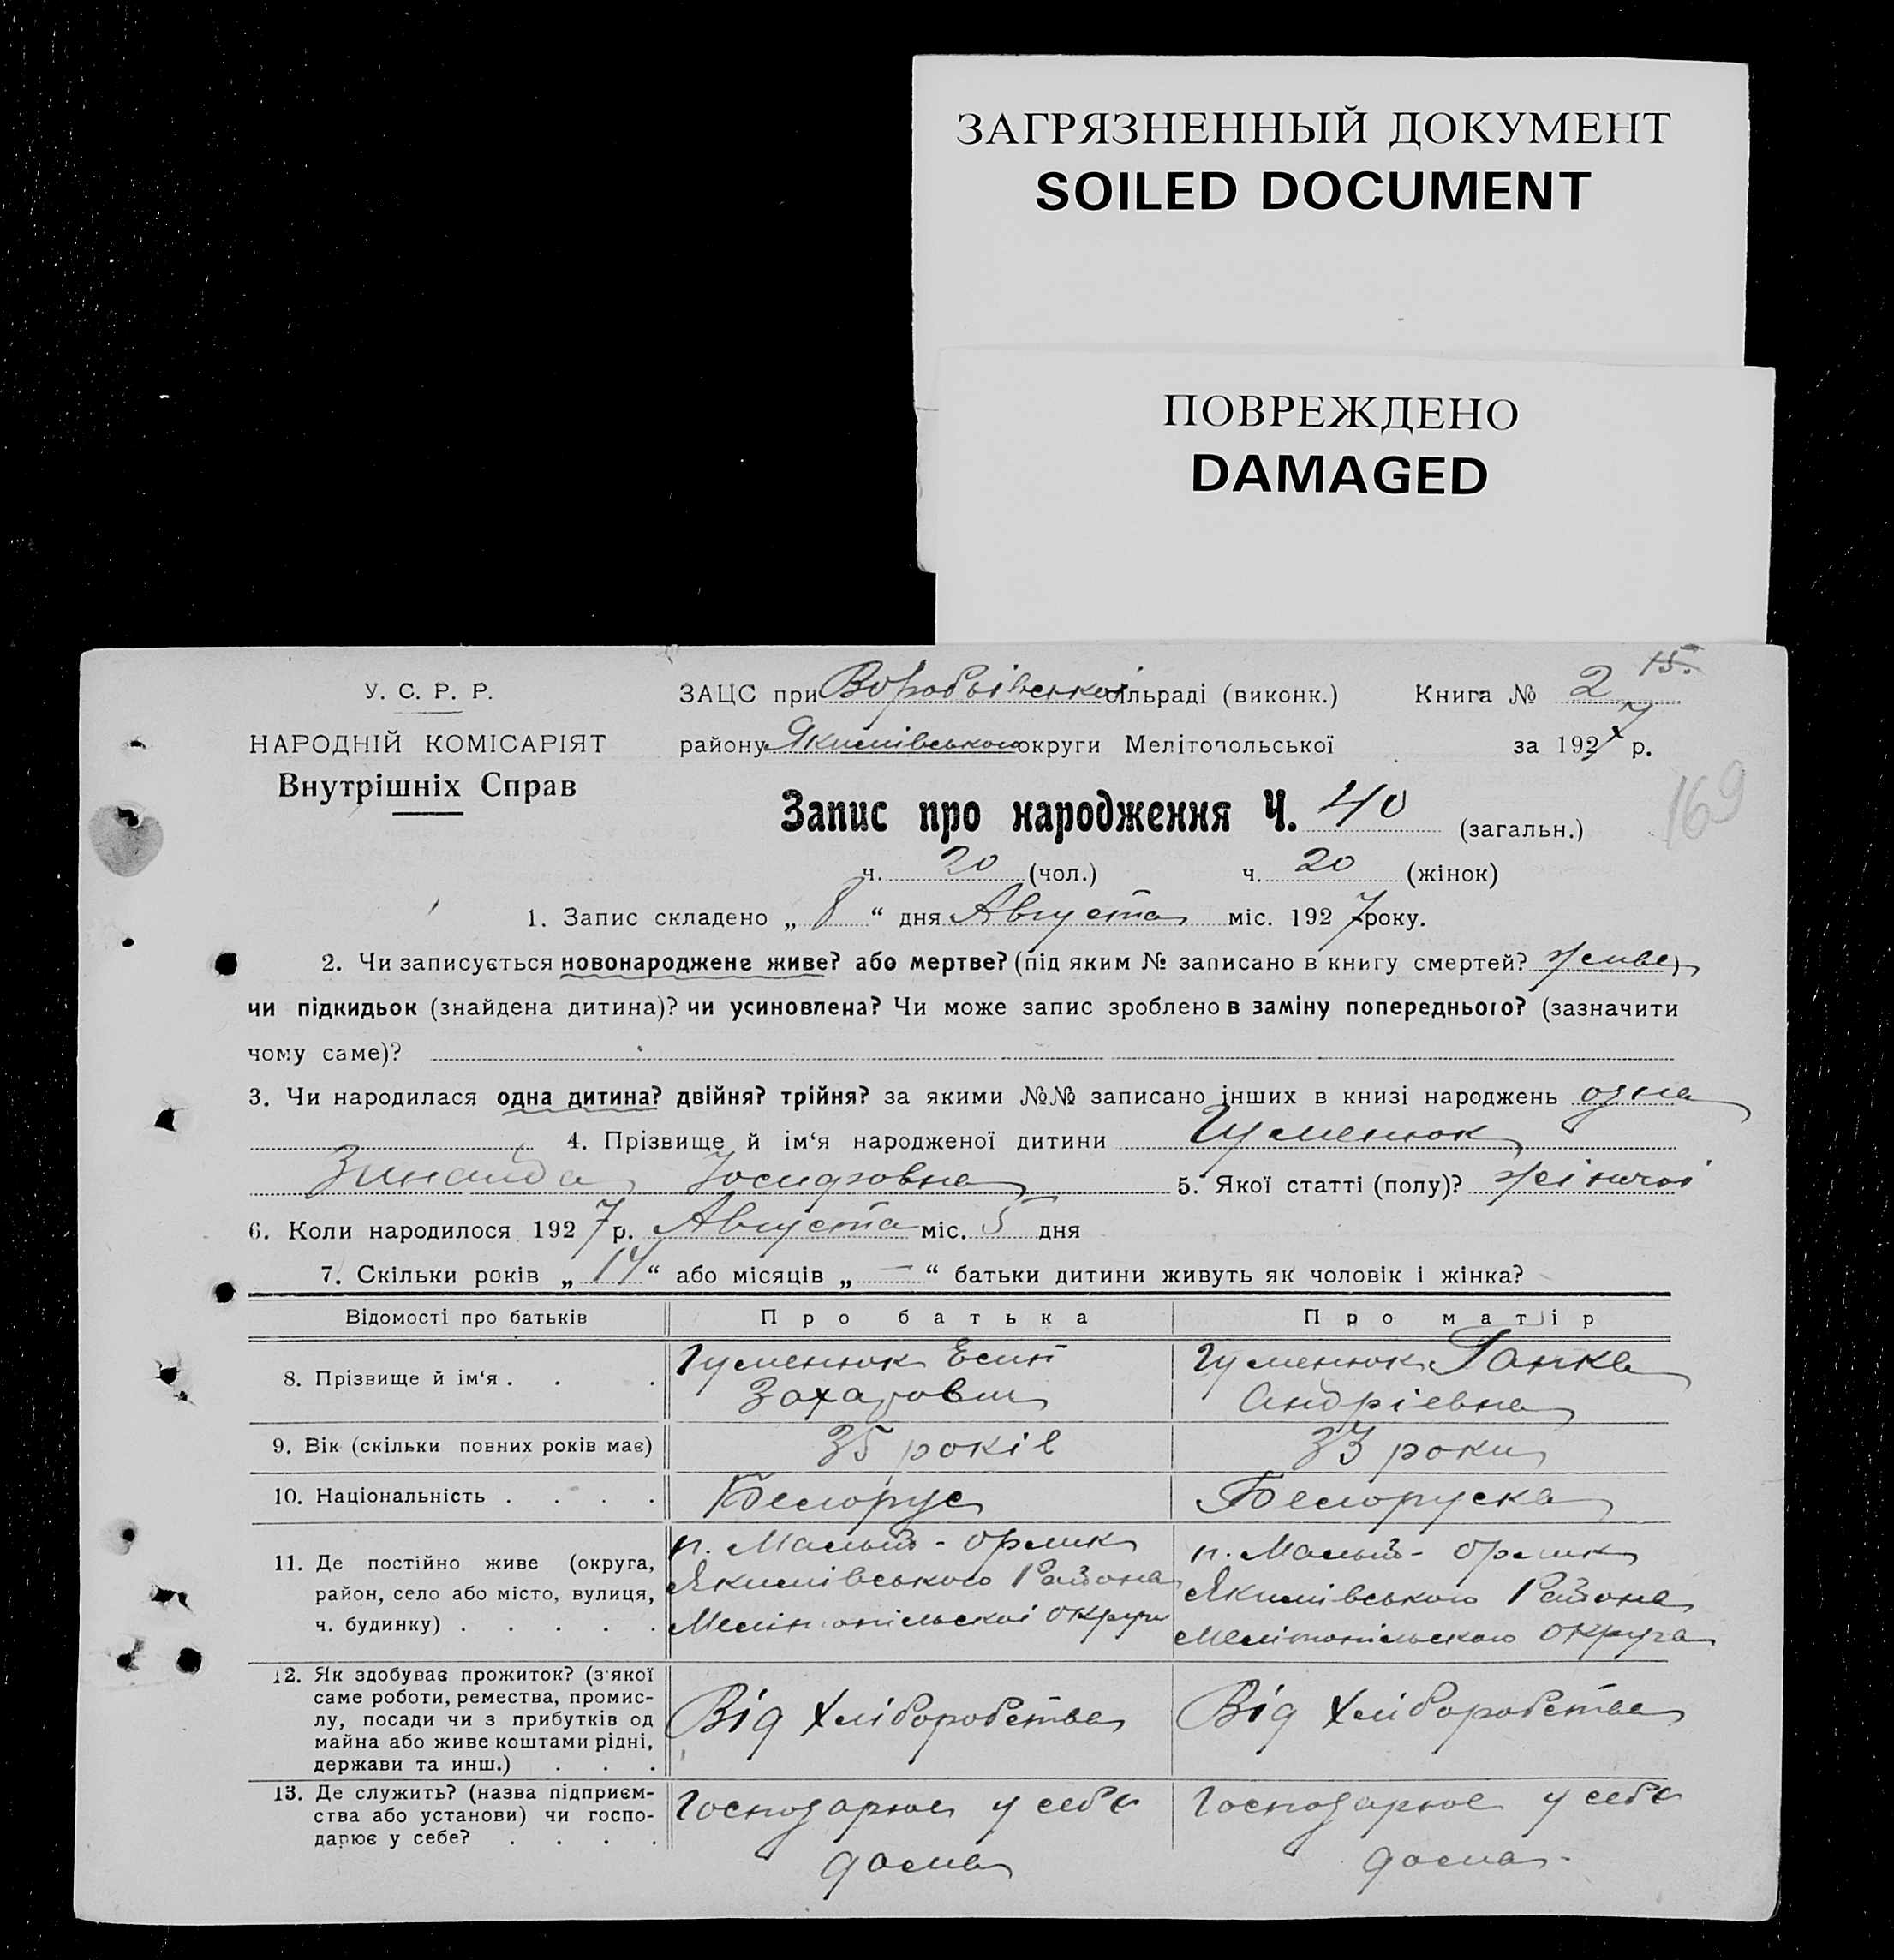 ЗАГРЯЗНЕННЫЙ ДОКУМЕНТ
SOILED DOCUMENT
ПОВРЕЖДЕНО
DAMAGED
15.
У. С. Р. Р.
НАРОДНІЙ КОМІСАРІЯТ
Внутрішніх Справ
ЗАЦС при Воробьівської сільраді (виконк.) Книга № 2
району Якимівського округи Мелітопольської за 1927 р.
169
Запис про народження Ч. 40 (загальн.)
ч. 20 (чол.) ч. 20 (жінок)
1. Запис складено „ 8 “ дня Августа міс. 1927 року.
2. Чи записується новонароджене живе? або мертве? (під яким № записано в книгу смертей? живе)
чи підкидьок (знайдена дитина)? чи усиновлена? Чи може запис зроблено в заміну попереднього? (зазначити
чому саме)?
3. Чи народилася одна дитина? двійня? трійня? за якими №№ записано інших в книзі народжень одна
4. Прізвище й ім‘я народженої дитини Гуменюк
Зинаида Йосифовна 5. Якої статті (полу)? жіночої
6. Коли народилося 1927 р. Августа міс. 5 дня
7. Скільки років „ 14 “ або місяців „ — “ батьки дитини живуть як чоловік і жінка?
Відомості про батьків Про батька Про матір
8. Прізвище й ім‘я . . . Гуменюк Есип Захарович Гуменюк Ганка Андріевна
9. Вік (скільки повних років має) 35 років 33 роки
10. Національність . . . . Белорус Белоруска
11. Де постійно живе (округа,
район, село або місто, вулиця,
ч. будинку) . . . . .
п. Малый - Орлик
Якимівського Района
Мелітопільскої округи
п. Малый - Орлик
Якимівського Района
Мелітопільского округа
12. Як здобуває прожиток? (з якої
саме роботи, ремества, промис-
лу, посади чи з прибутків од
майна або живе коштами рідні,
держави та инш.) . . .
Від Хліборобства
Від Хліборобства
13. Де служить? (назва підприєм-
ства або установи) чи госпо-
дарює у себе? . . . .
Господарює у себе
дома
Господарює у себе
дома.